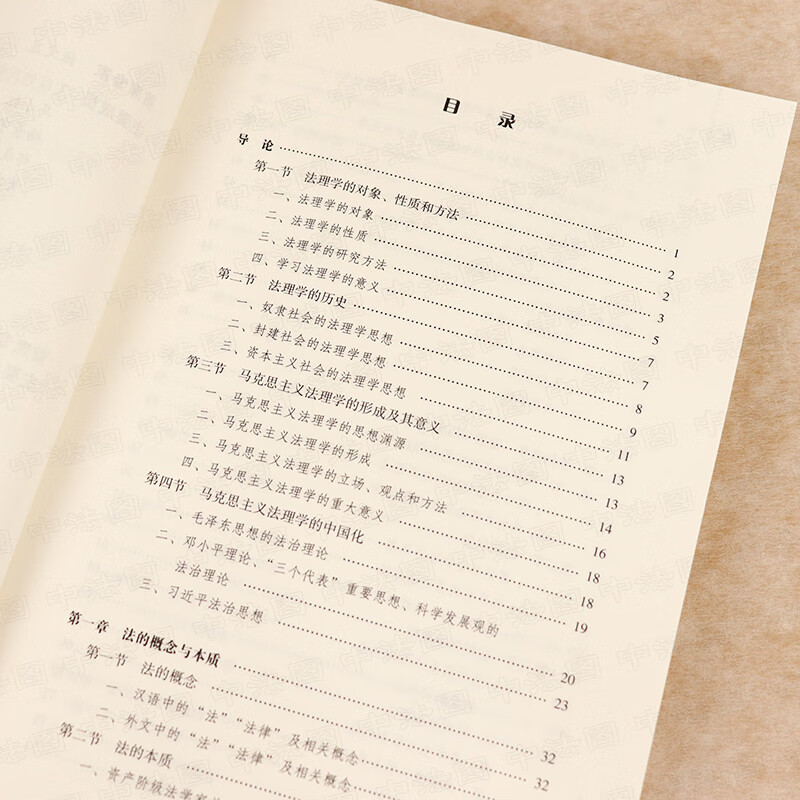 目 录
导 论 …… 1
第一节 法理学的对象、性质和方法 …… 2
一、法理学的对象 …… 2
二、法理学的性质 …… 3
三、法理学的研究方法 …… 5
四、学习法理学的意义 …… 7
第二节 法理学的历史 …… 7
一、奴隶社会的法理学思想 …… 8
二、封建社会的法理学思想 …… 9
三、资本主义社会的法理学思想 …… 11
第三节 马克思主义法理学的形成及其意义 …… 13
一、马克思主义法理学的思想渊源 …… 13
二、马克思主义法理学的形成 …… 14
三、马克思主义法理学的立场、观点和方法 …… 16
四、马克思主义法理学的重大意义 …… 18
第四节 马克思主义法理学的中国化 …… 18
一、毛泽东思想的法治理论 …… 19
二、邓小平理论、“三个代表”重要思想、科学发展观的
法治理论 …… 20
三、习近平法治思想 …… 23
第一章 法的概念与本质 …… 32
第一节 法的概念 …… 32
一、汉语中的“法”“法律”及相关概念 ……
二、外文中的“法”“法律”及相关概念 ……
第二节 法的本质 ……
一、资产阶级法学家
中法图